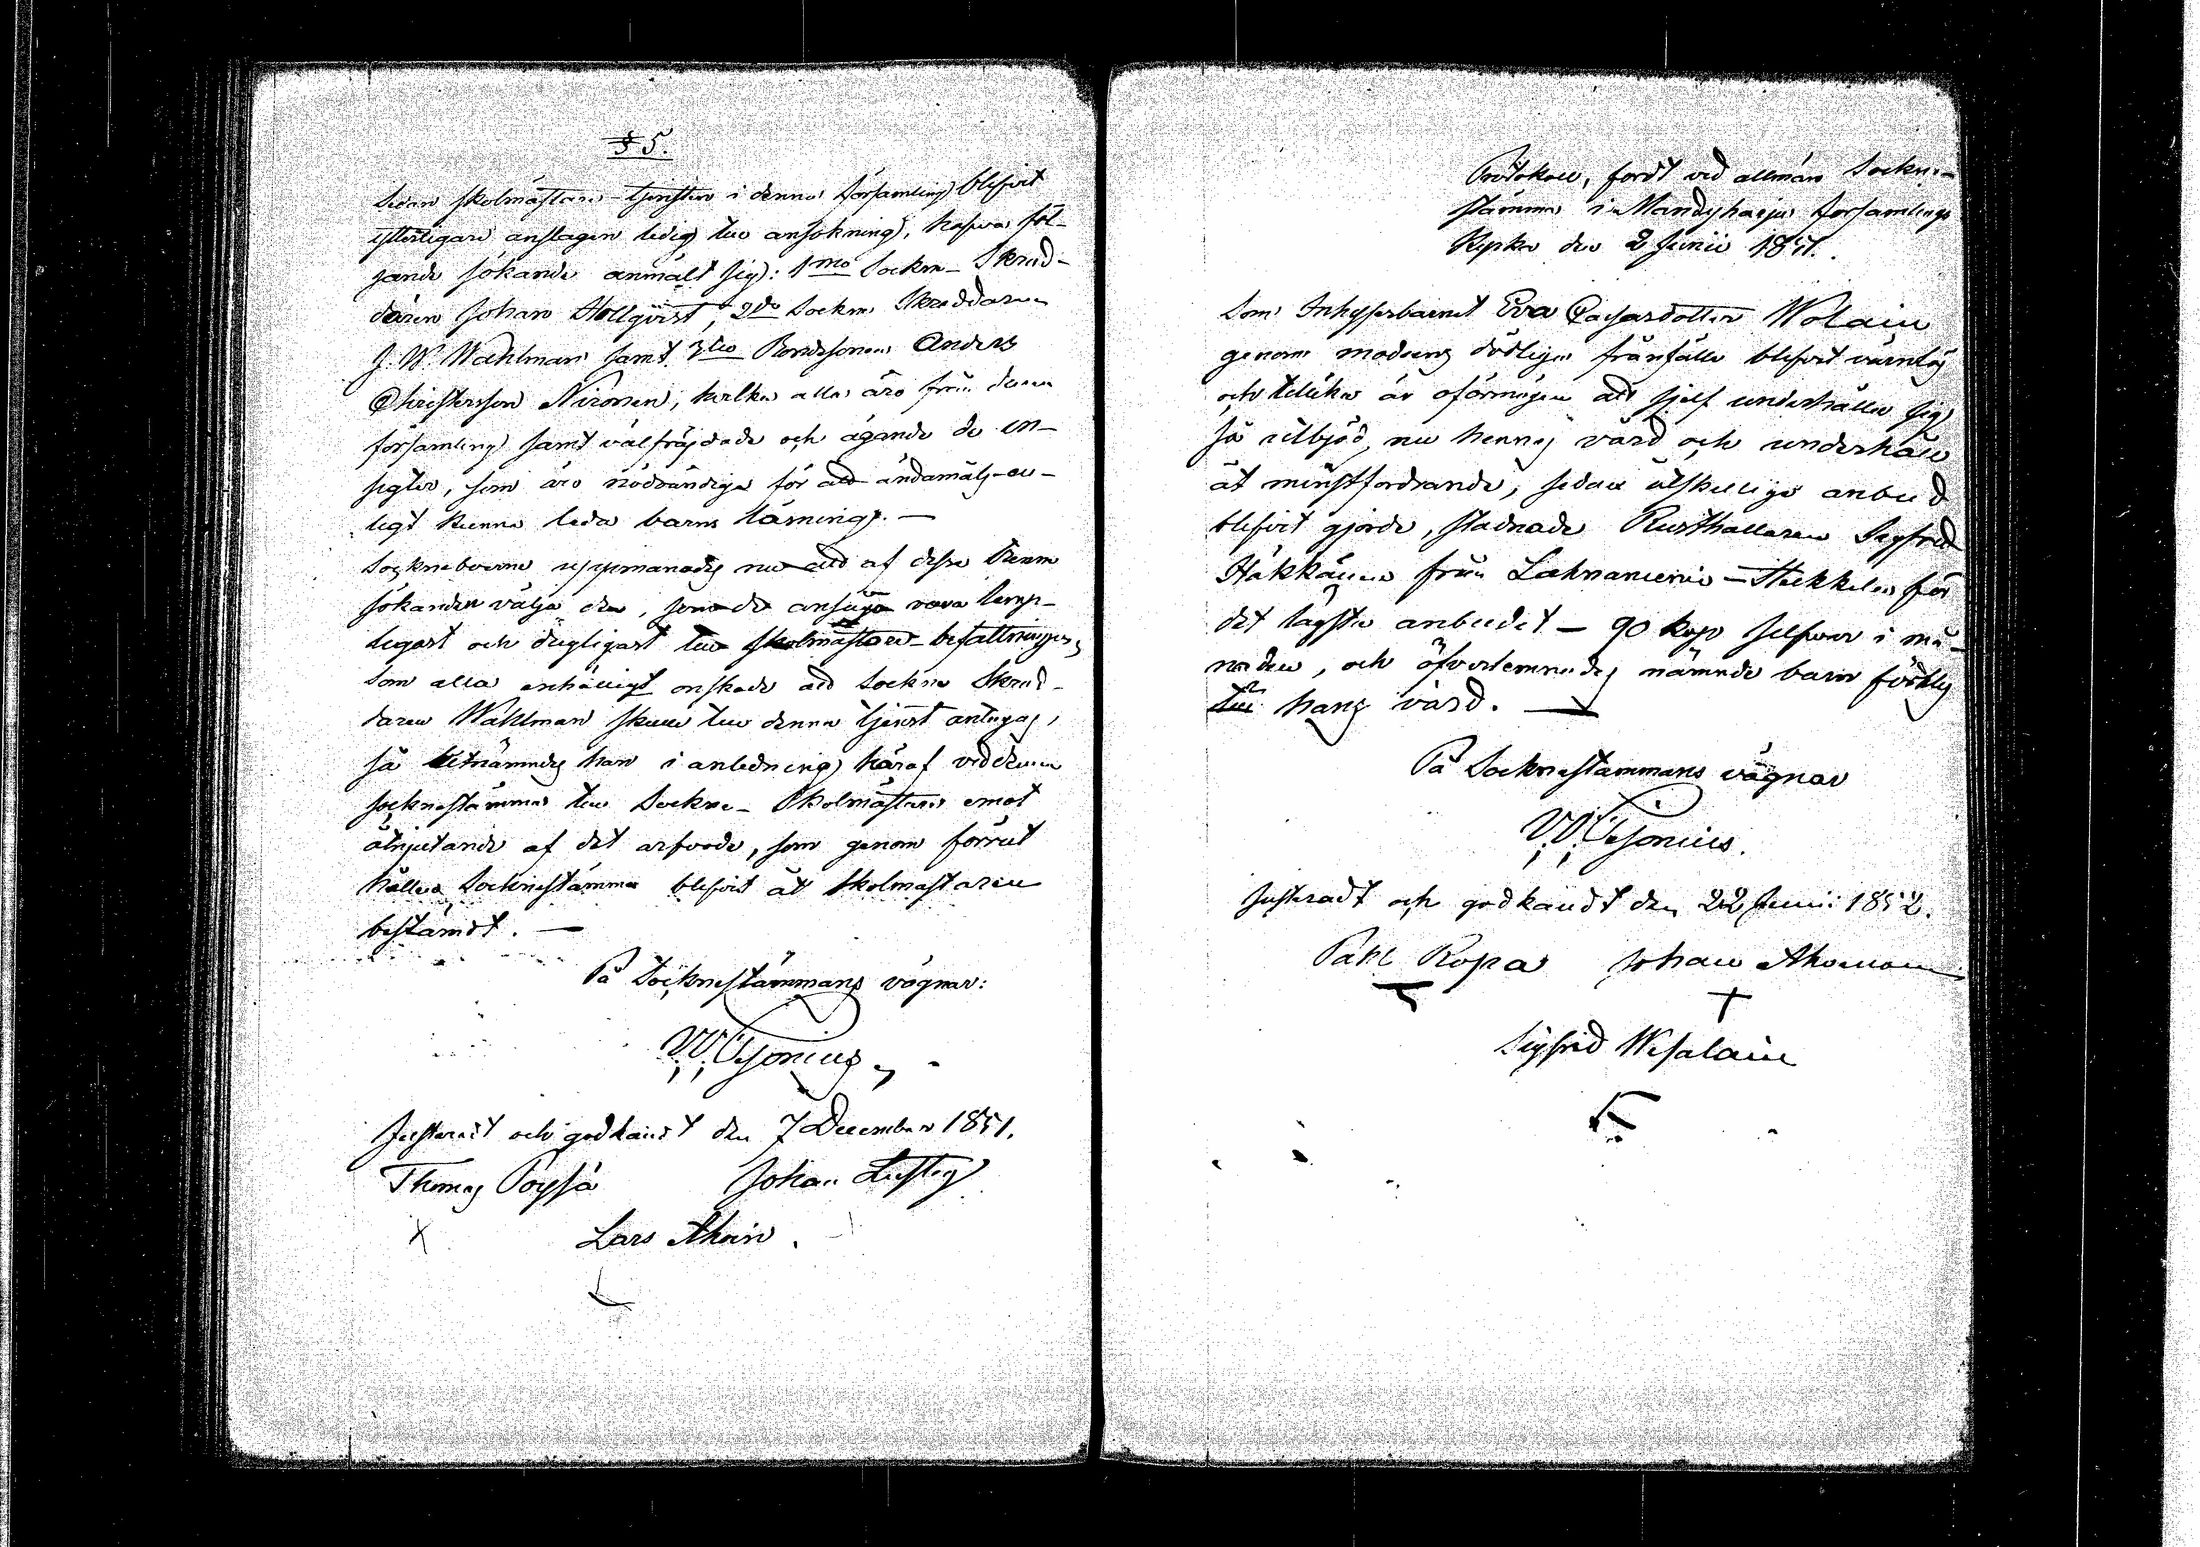 § 5.
Sedan skolmästare-tjensten i denna församling blifvit
ytterligare anslagen ledig till ansökning, hafva föl-
jande sökande anmält sig: 1mo Sockne-Skräd-
daren Johan Hollqvist, 2do Sockne Skräddaren
J. W. Wahlman samt 3tio Bondesonen Anders
Christersson Nironen, hvilka alla äro från denna
församling samt välfräjdade och ägande de in-
sigter, som äro nödvändiga för att ändamålsen-
ligt kunna leda barns läsning. —
Sockneboerne uppmanades nu att af desse trenne
sökanden välja den, som de anse vara lämp-
ligast och dugligast till skolmästare-befattningen,
som alla enhälligt önskade att Sockne Skräd-
daren Wahlman skulle till denna tjenst antagas,
så utnämndes han i anledning häraf vid denna
sockneståmma till Sockne-Skolmästare emot
åtnjutande af det arfvode, som genom förrut
hållen Socknestämma blifvit åt Skolmästaren
bestämdt. —
På Socknestämmans vägnar:
W. Cajonius
Justeradt och godkändt den 7 December 1851.
Thomas Pöysä Johan Lustig
X Lars Ahoin.
Protokoll, fördt vid allmän Sockne-
stämma i Mändyharju församlings
Kyrka den 2 Junii 1851.
Som Inhyserbarnet Eva Caisasdotter Wolain
genom modrens dödliga frånfälle blifvit värnlös
och tillika är oförmögen att sjelf underhålla sig,
så utbjöd nu hennes vård och underhåll
åt minstfordrande, sedan åtskillige anbud
blifvit gjorde, stadnade Rusthållaren Sigfrid
Häkkäinen från Lahnaniemi-Stukkela för
det lägsta anbudet — 90 kop. silfver i må-
naden, och öfverlemnades nämnde barn
till hans vård. —
På Socknestämmans vägnar
W. Cajonius.
Justeradt och godkändt den 22 Junii 1852.
Påhl Ropa Johan Ahonen
Sigfrid Wesalain